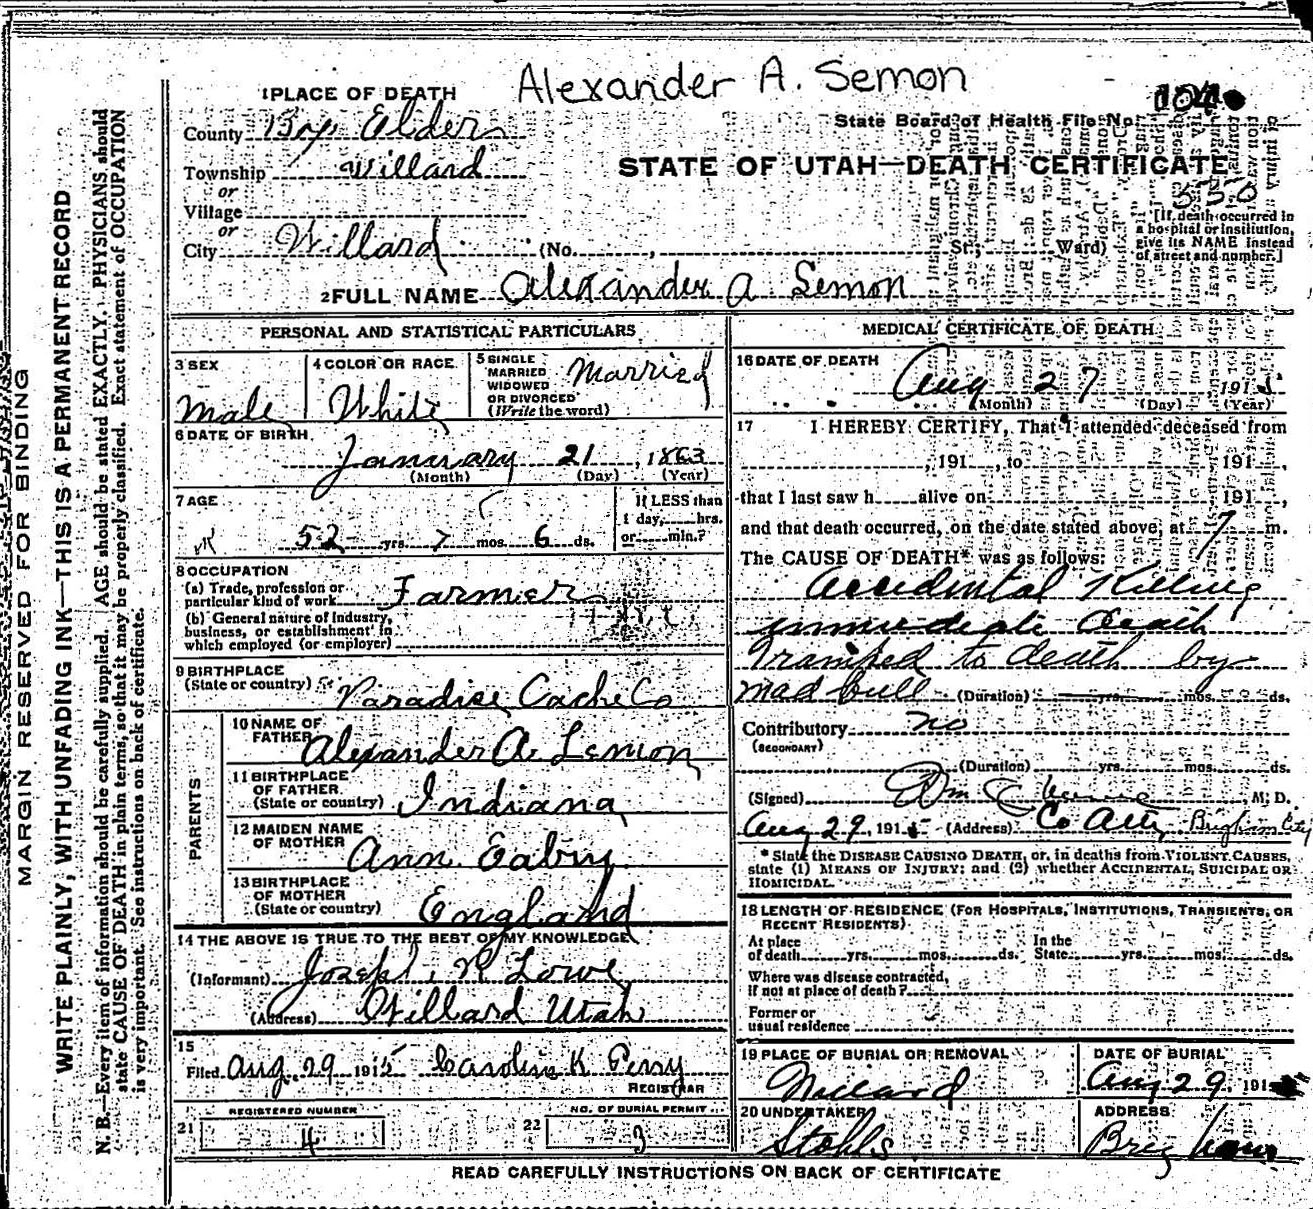 Alexander A. Semon
1 PLACE OF DEATH
State Board of Health File No.
County Box Elder
STATE OF UTAH—DEATH CERTIFICATE
Township Willard
or
Village
or
City Willard (No. , St.; Ward)
350
[If death occurred in
a hospital or institution,
give its NAME instead
of street and number.]
2 FULL NAME Alexander A Semon
MARGIN RESERVED FOR BINDING
WRITE PLAINLY, WITH UNFADING INK—THIS IS A PERMANENT RECORD
N. B.—Every item of information should be carefully supplied. AGE should be stated EXACTLY. PHYSICIANS should
state CAUSE OF DEATH in plain terms, so that it may be properly classified. Exact statement of OCCUPATION
is very important. See instructions on back of certificate.
PERSONAL AND STATISTICAL PARTICULARS
3 SEX
Male
4 COLOR OR RACE
White
5 SINGLE
MARRIED
WIDOWED
OR DIVORCED
(Write the word)
Married
6 DATE OF BIRTH
January 21, 1863
(Month) (Day) (Year)
7 AGE
52 yrs. 7 mos. 6 ds.
If LESS than
1 day, hrs.
or min.?
8 OCCUPATION
(a) Trade, profession or
particular kind of work Farmer
(b) General nature of industry,
business, or establishment in
which employed (or employer)
9 BIRTHPLACE
(State or country) Paradise Cache Co
PARENTS
10 NAME OF
FATHER Alexander A. Lemon
11 BIRTHPLACE
OF FATHER
(State or country) Indiana
12 MAIDEN NAME
OF MOTHER Ann Eabry
13 BIRTHPLACE
OF MOTHER
(State or country) England
14 THE ABOVE IS TRUE TO THE BEST OF MY KNOWLEDGE
(Informant) Joseph R Lowe
(Address) Willard Utah
15
Filed Aug. 29 1915 Caroline K Perry
REGISTRAR
REGISTERED NUMBER
21 4
NO. OF BURIAL PERMIT
22 3
MEDICAL CERTIFICATE OF DEATH
16 DATE OF DEATH
Aug 27 1915
(Month) (Day) (Year)
17 I HEREBY CERTIFY, That I attended deceased from
, 191 , to 191 ,
that I last saw h alive on 191 ,
and that death occurred, on the date stated above, at 7 m.
The CAUSE OF DEATH* was as follows:
Accidental Killing
immediate Death
Tramped to death by
mad bull (Duration) yrs. mos. ds.
Contributory no
(SECONDARY)
(Duration) yrs. mos. ds.
(Signed) Wm , M. D.
Aug 29, 1915 (Address) Co Atty Brigham City
* State the DISEASE CAUSING DEATH, or, in deaths from VIOLENT CAUSES,
state (1) MEANS OF INJURY; and (2) whether ACCIDENTAL, SUICIDAL OR
HOMICIDAL.
18 LENGTH OF RESIDENCE (FOR HOSPITALS, INSTITUTIONS, TRANSIENTS, OR
RECENT RESIDENTS).
At place
of death yrs. mos. ds.
In the
State yrs. mos. ds.
Where was disease contracted,
if not at place of death?
Former or
usual residence
19 PLACE OF BURIAL OR REMOVAL
Willard
DATE OF BURIAL
Aug 29 191
20 UNDERTAKER
Stohls
ADDRESS
Brigham
READ CAREFULLY INSTRUCTIONS ON BACK OF CERTIFICATE